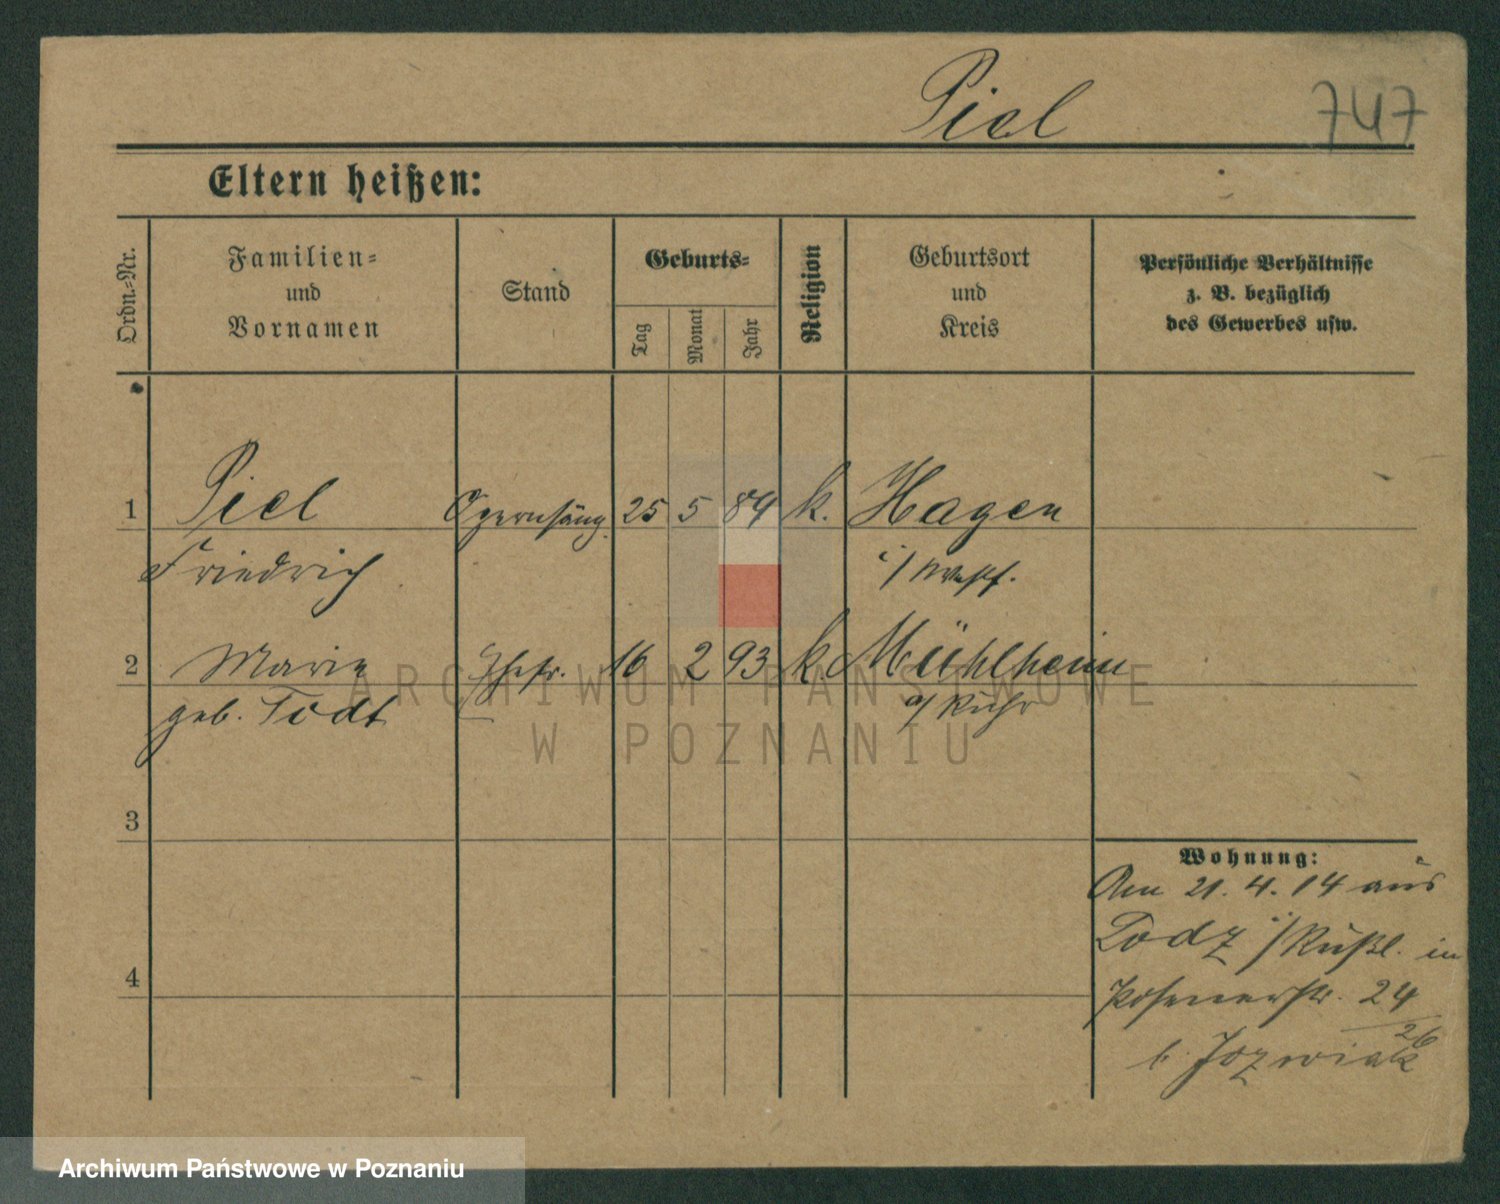 Piel 747
Eltern heißen:
Ordn.-Nr.
Familien-
und
Vornamen
Stand
Geburts-
Tag
Monat
Jahr
Religion
Geburtsort
und
Kreis
Persönliche Verhältnisse
z. B. bezüglich
des Gewerbes usw.
1 Piel Opernsäng. 25 5 84 k. Hagen
Friedrich i/Westf.
2 Marie Ehefr. 16 2 93 k. Mühlheim
geb. Todt a/Ruhr
3
4
Wohnung:
Am 21. 4. 14 aus
Lodz i/Rußl. in
Posenerstr. 24
26
b. Jozwiak
ARCHIWUM PAŃSTWOWE
W POZNANIU
Archiwum Państwowe w Poznaniu